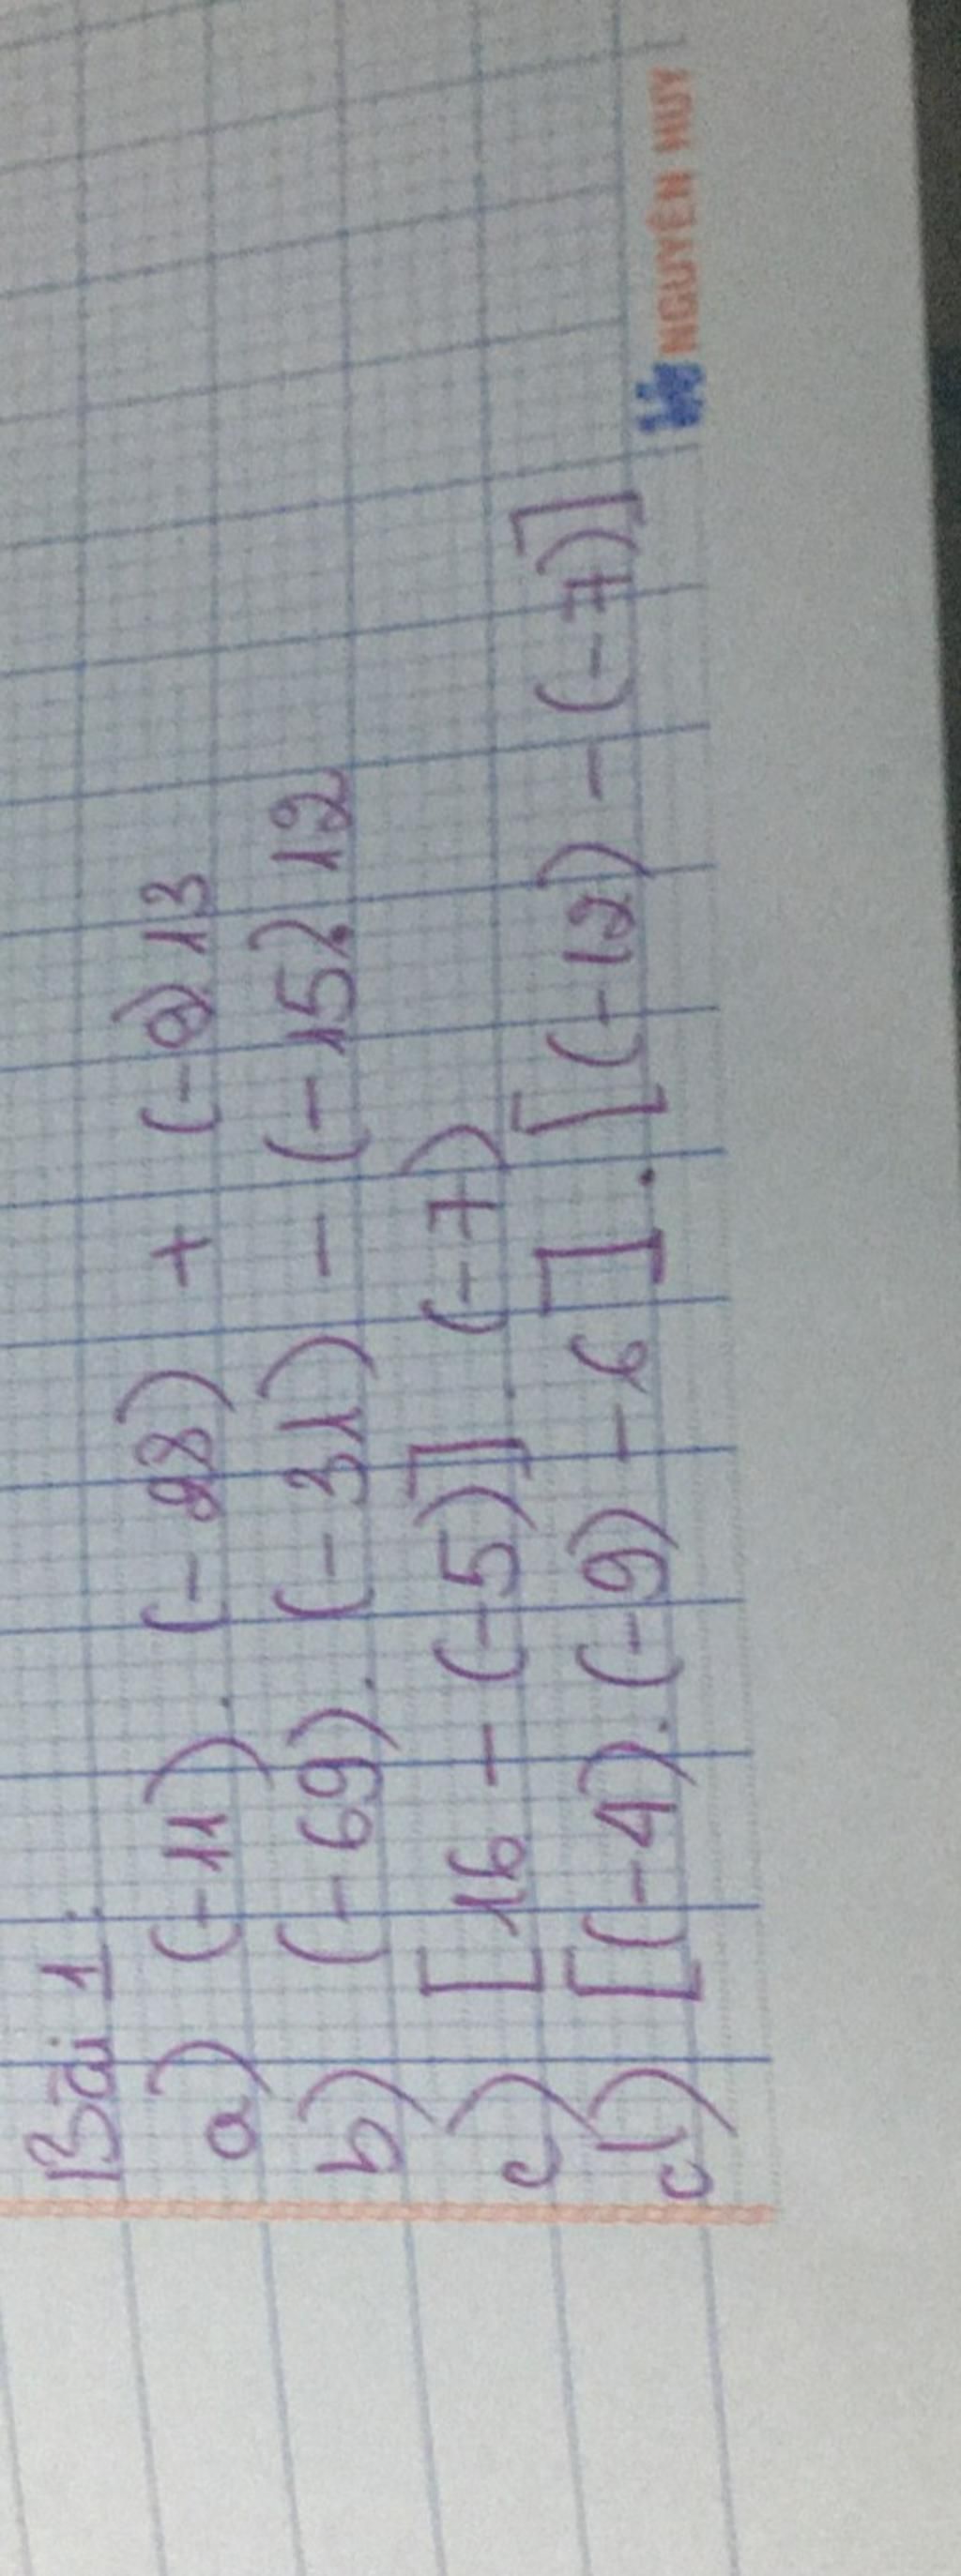 Bài 1:
a) (-11). (-28) + (-9) 13
b) (-69). (-31) - (-15). 12
c) [16 - (-5)]. (-7)
d) [(-4).(-9) - 6].[(-12) - (-7)]
NGUYÊN HUY